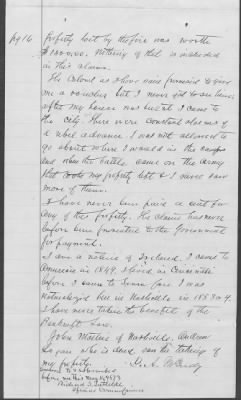 pg 16
property lost by the fire was worth
$1000.00. Nothing of that is included
in this claim.
The Colonel as I have said promised to give
me a voucher but I never got to see him;
after my house was burnt I came to
the city. There were constant alarms of
a rebel advance. I was not allowed to
go about where I would in the camps
and when the battle came on the army
that took my property left & I never saw
more of them.
I have never been paid a cent for
any of this property. The claim has never
before been presented to the Government
for payment.
I am a native of Ireland. I came to
America in 1849. I lived in Cincinnati
before I came to Tenn. I was
Naturalized here in Nashville in 1853 or 4
I have never taken the benefit of the
Bankrupt Law.
John of Nashville, Andrew
Logan who is dead saw the taking of
my property.
Sworn to & subscribed
before me this May 1873
Special Commissioner